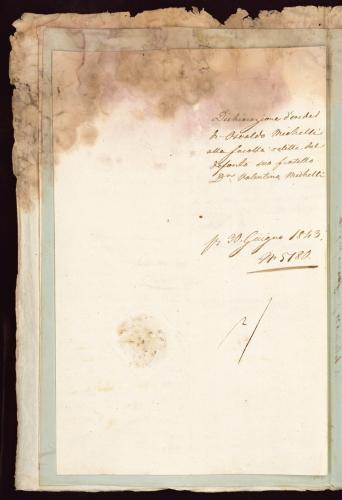 Dichiarazione d'erede
di Osvaldo Michelli
alla facoltà relitta dal
defunto suo fratello
Valentino Michelli
30. Giugno 1843.
N. 5780.